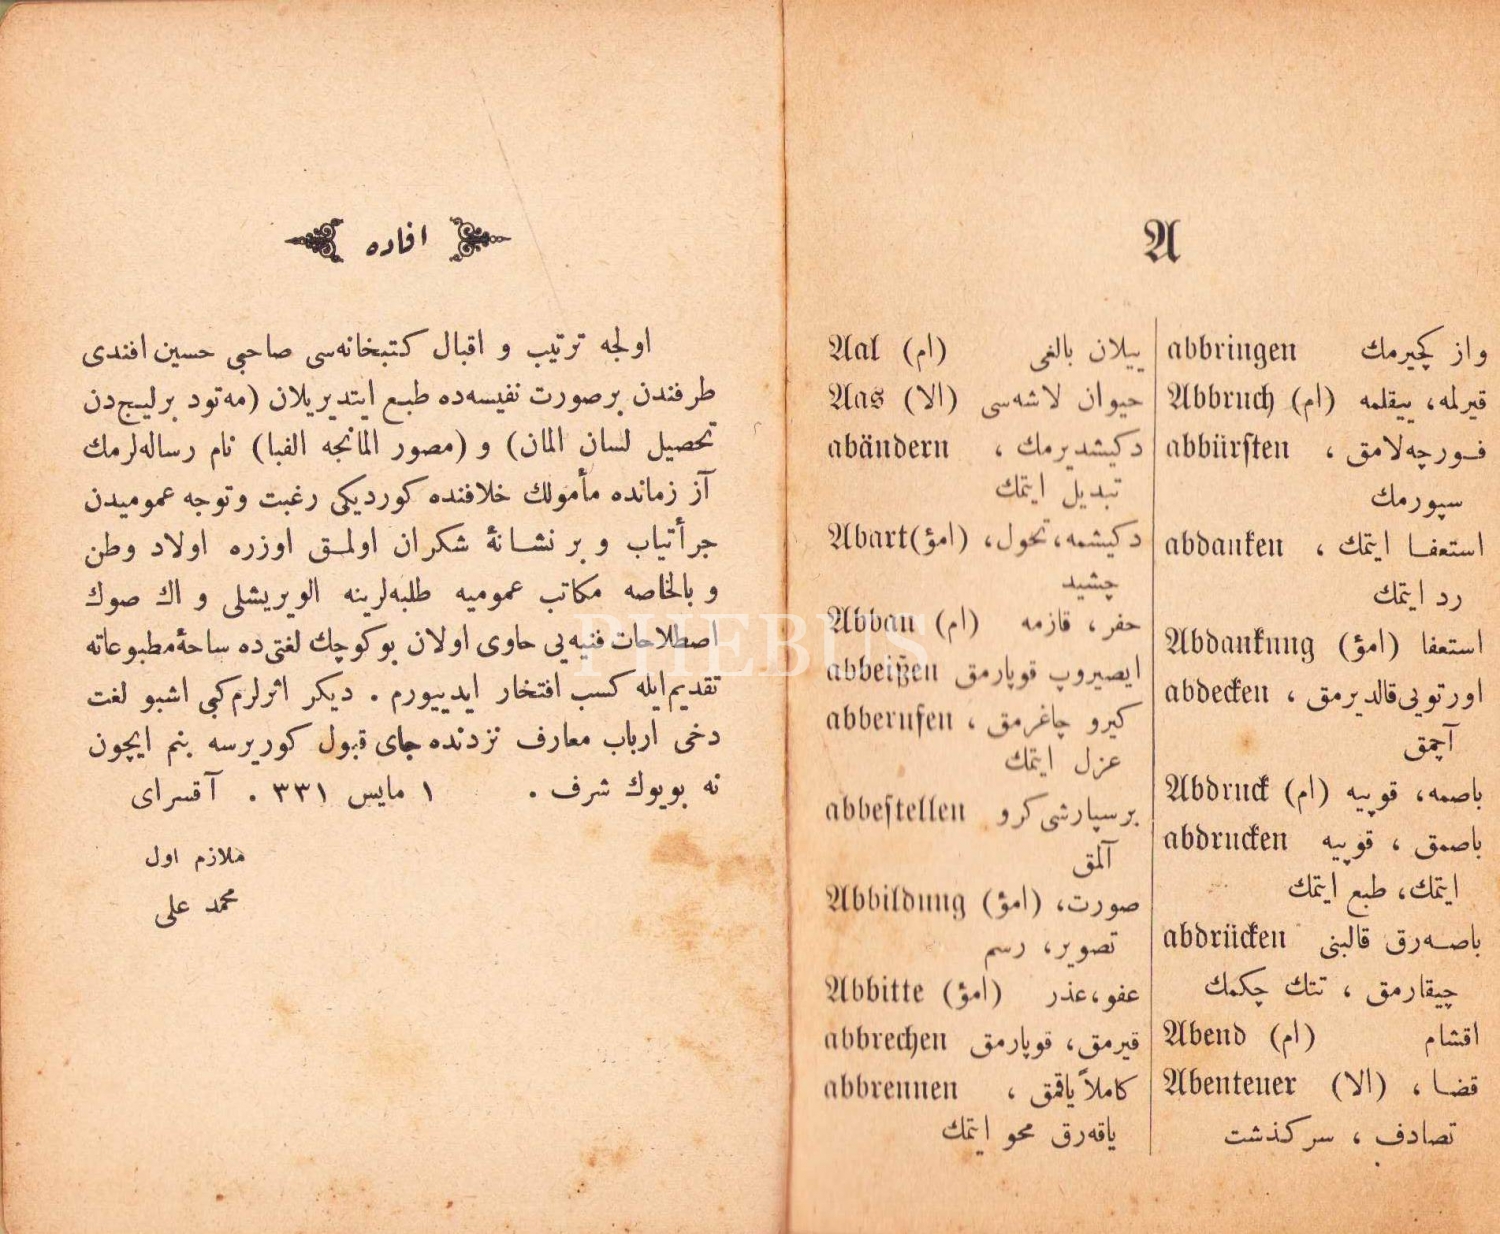 افاده
اولجه ترتیب و اقبال كتبخانه‌سی صاحبی حسین افندی
طرفندن برصورت نفیسه‌ده طبع ایتدیریلان (مه‌تود برلیچ‌دن
تحصیل لسان المان) و (مصور المانجه الفبا) نام رساله‌لرمك
آز زمانده مأمولك خلافنده كوردیكی رغبت وتوجه عمومیدن
جرأتیاب و بر نشانهٔ شكران اولمق اوزره اولاد وطن
و بالخاصه مكاتب عمومیه طلبه‌لرینه الویریشلی و اك صوك
اصطلاحات فنیه‌یی حاوی اولان بوكوچك لغتی‌ده ساحهٔ مطبوعاته
تقدیم ایله كسب افتخار ایدییورم . دیكر اثرلرم كبی اشبو لغت
دخی ارباب معارف نزدنده جای قبول كوریرسه بنم ایچون
نه بویوك شرف . ١ مایس ٣٣١ . آقسرای
ملازم اول
محمد علی
A
Aal (ام) ییلان بالغی
Aas (الا) حیوان لاشه‌سی
abändern دكیشدیرمك ،
تبدیل ایتمك
Abart (امؤ) دكیشمه، تحول،
چشید
Abbau (ام) حفر ، قازمه
abbeißen ایصیروپ قوپارمق
abberufen كیرو چاغرمق ،
عزل ایتمك
abbestellen برسپارشی كرو
آلمق
Abbildung (امؤ) صورت،
تصویر، رسم
Abbitte (امؤ) عفو،عذر
abbrechen قیرمق، قوپارمق
abbrennen كاملاً یاقمق ،
یاقه‌رق محو ایتمك
abbringen واز كچیرمك
Abbruch (ام) قیرلمه، ییقلمه
abbürsten فورچه‌لامق ،
سپورمك
abdanken استعفا ایتمك ،
رد ایتمك
Abdankung (امؤ) استعفا
abdecken اورتویی قالدیرمق ،
آچمق
Abdruck (ام) باصمه، قوپیه
abdrucken باصمق ، قوپیه
ایتمك، طبع ایتمك
abdrücken باصه‌رق قالبنی
چیقارمق ، تتك چكمك
Abend (ام) اقشام
Abenteuer (الا) قضا ،
تصادف ، سركذشت
PHEBUS